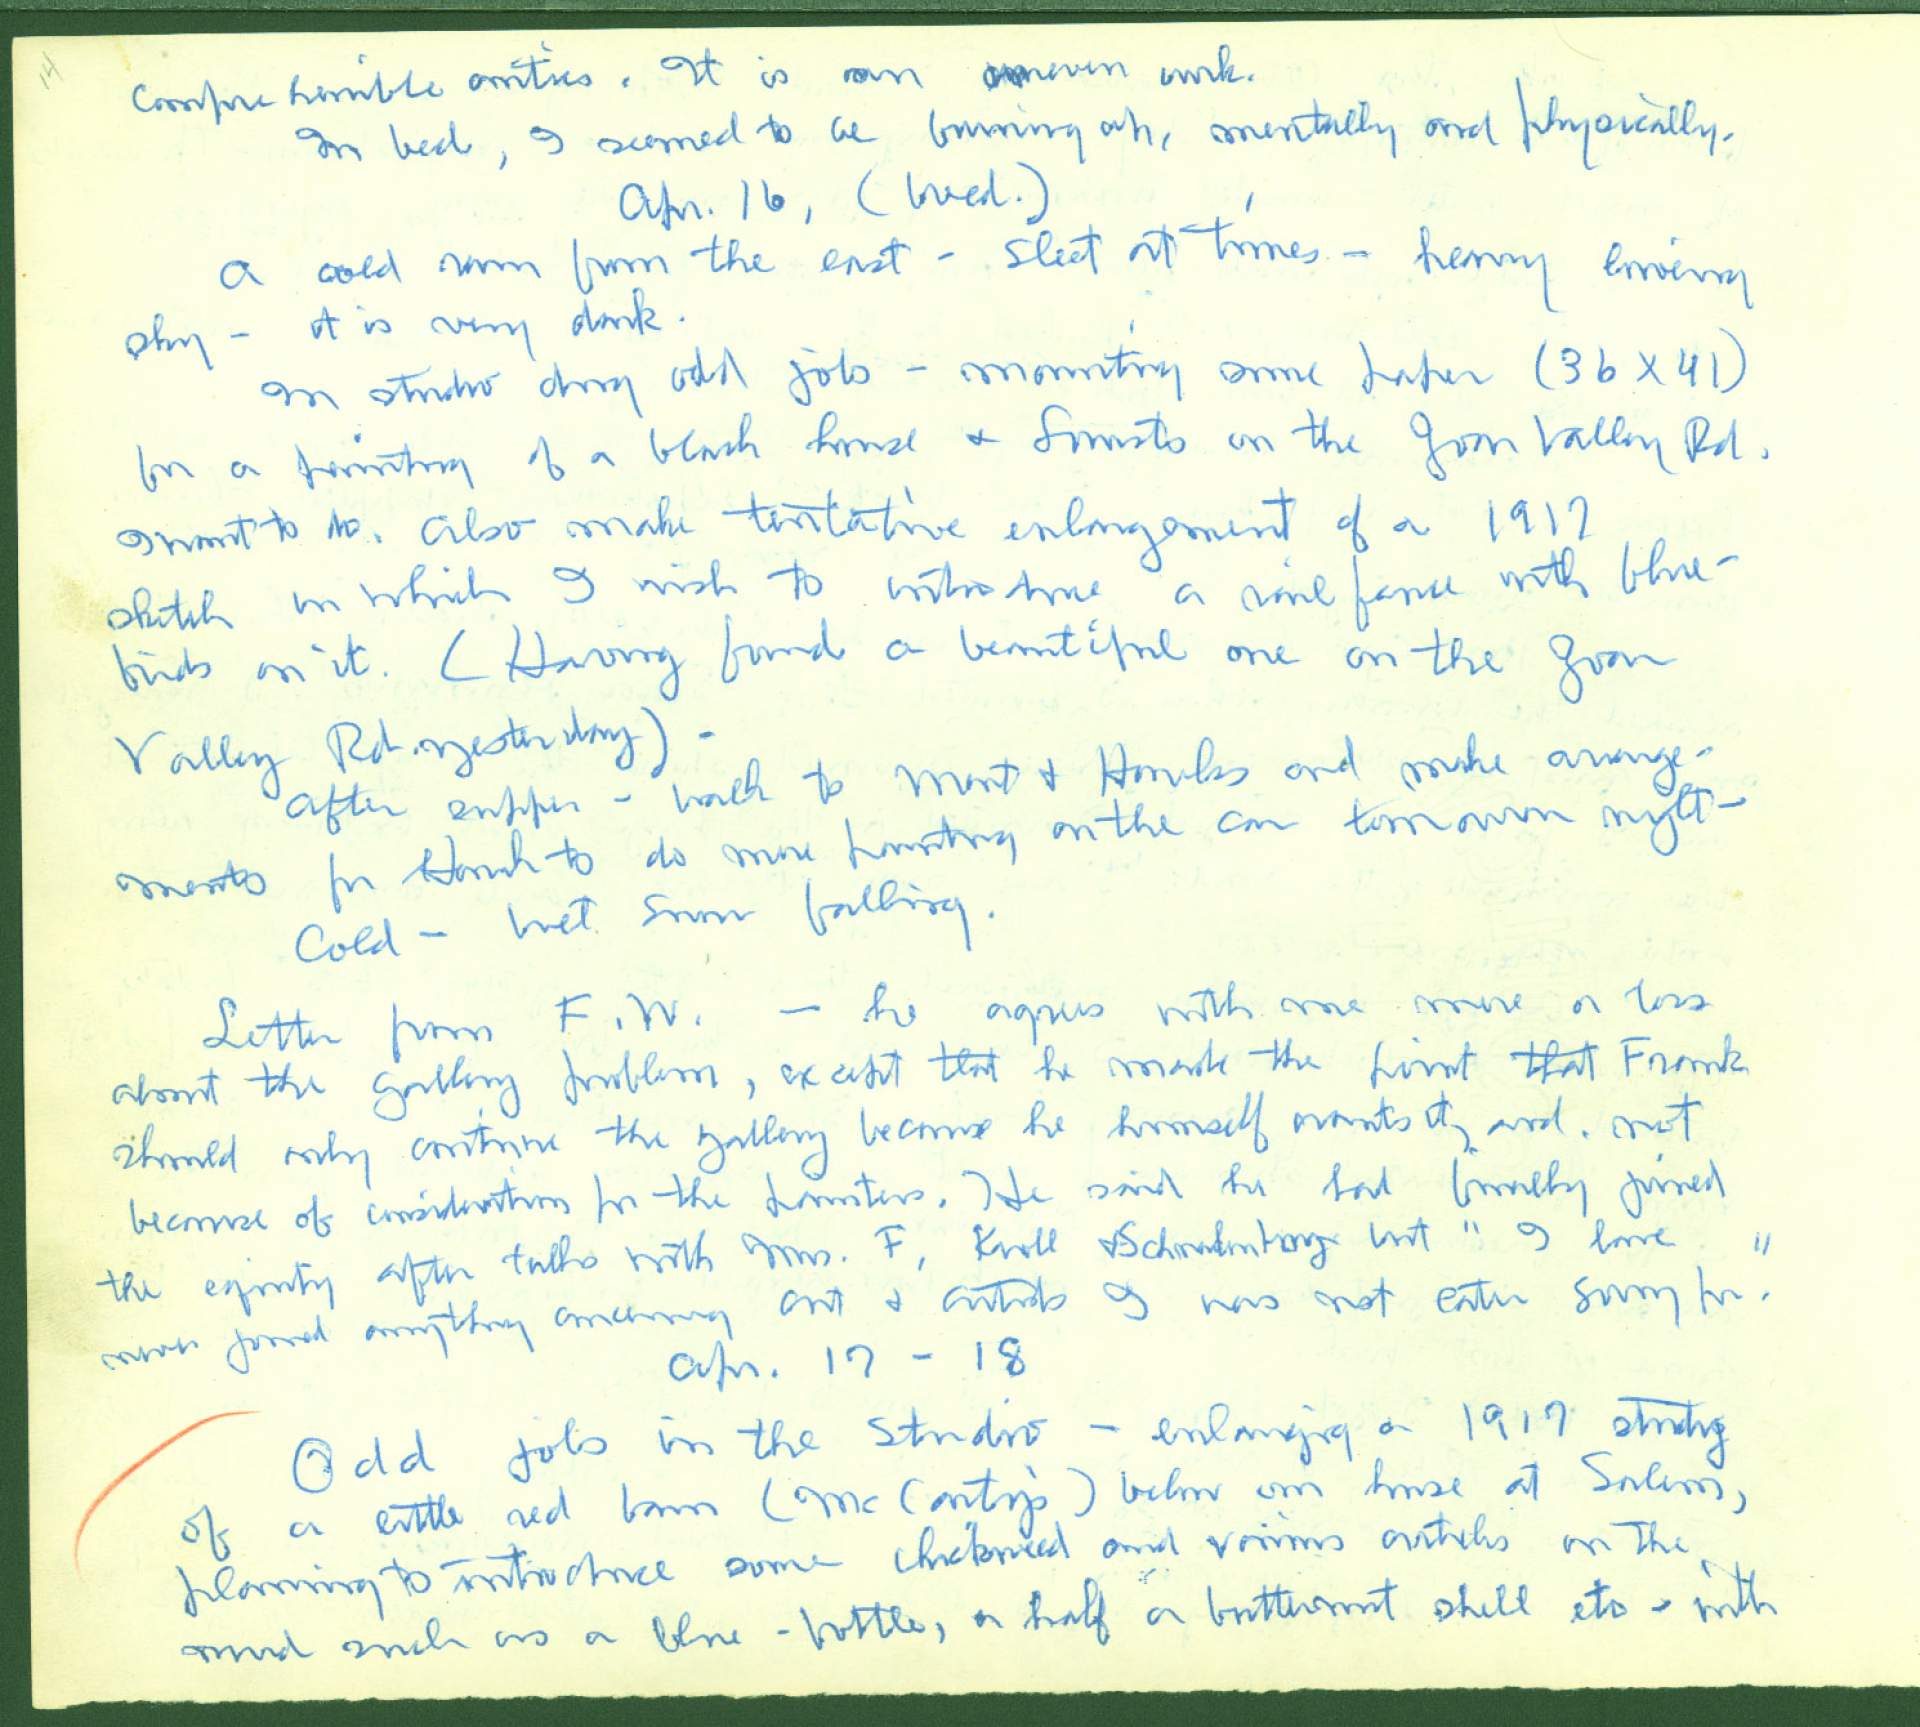 14
comprehensible entities. It is an uneven work.
In bed, I seemed to be burning up, mentally and physically.
Apr. 16, (Wed.)
A cold rain from the east – sleet at times – heavy lowering
sky – it is very dark.
In studio doing odd jobs – mounting some paper (36 X 41)
for a painting of a black house & sunset on the Goan Valley Rd.
I want to do. Also make tentative enlargement of a 1917
sketch in which I wish to introduce a rail fence with blue-
birds on it. (Having found a beautiful one on the Goan
Valley Rd. yesterday) –
After supper – walk to Mart & Hanks and make arrange-
ments for Hank to do more painting on the car tomorrow night –
Cold – wet snow falling.
Letter from F.W. – he agrees with me more or less
about the gallery problem, except that he made the point that Frank
should only continue the gallery because he himself wants it, and not
because of consideration for the painters. He said he had finally joined
the equity after talks with Mrs. F, Kroll & but " I have
never joined anything concerning art & artists I was not later sorry for."
Apr. 17 – 18
Odd jobs in the studio – enlarging a 1917 study
of a little red barn (McCarty's) below our house at Salem,
planning to introduce some chickweed and various articles on the
mud such as a blue-bottle, a half a butternut shell etc – with